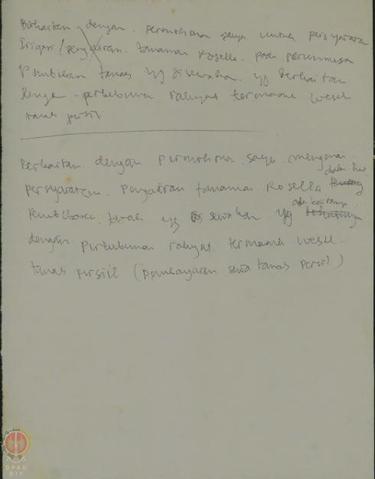 Berkaitan dengan permohonan saya untuk persyaratan
Irigasi / pengairan tanaman Rosella pada perumusan
tanah yg disewakan yg berkaitan
dengan perkebunan rakyat termasuk
tanah persil
Berkaitan dengan permohonan saya mengenai
persyaratan Pengairan tanaman Rosella dalam hal
tanah yg sewakan yg ada kaitannya
dengan Perkebunan rakyat termasuk
tanah persil (pembayaran sewa tanah persil)
DPAD
DIY